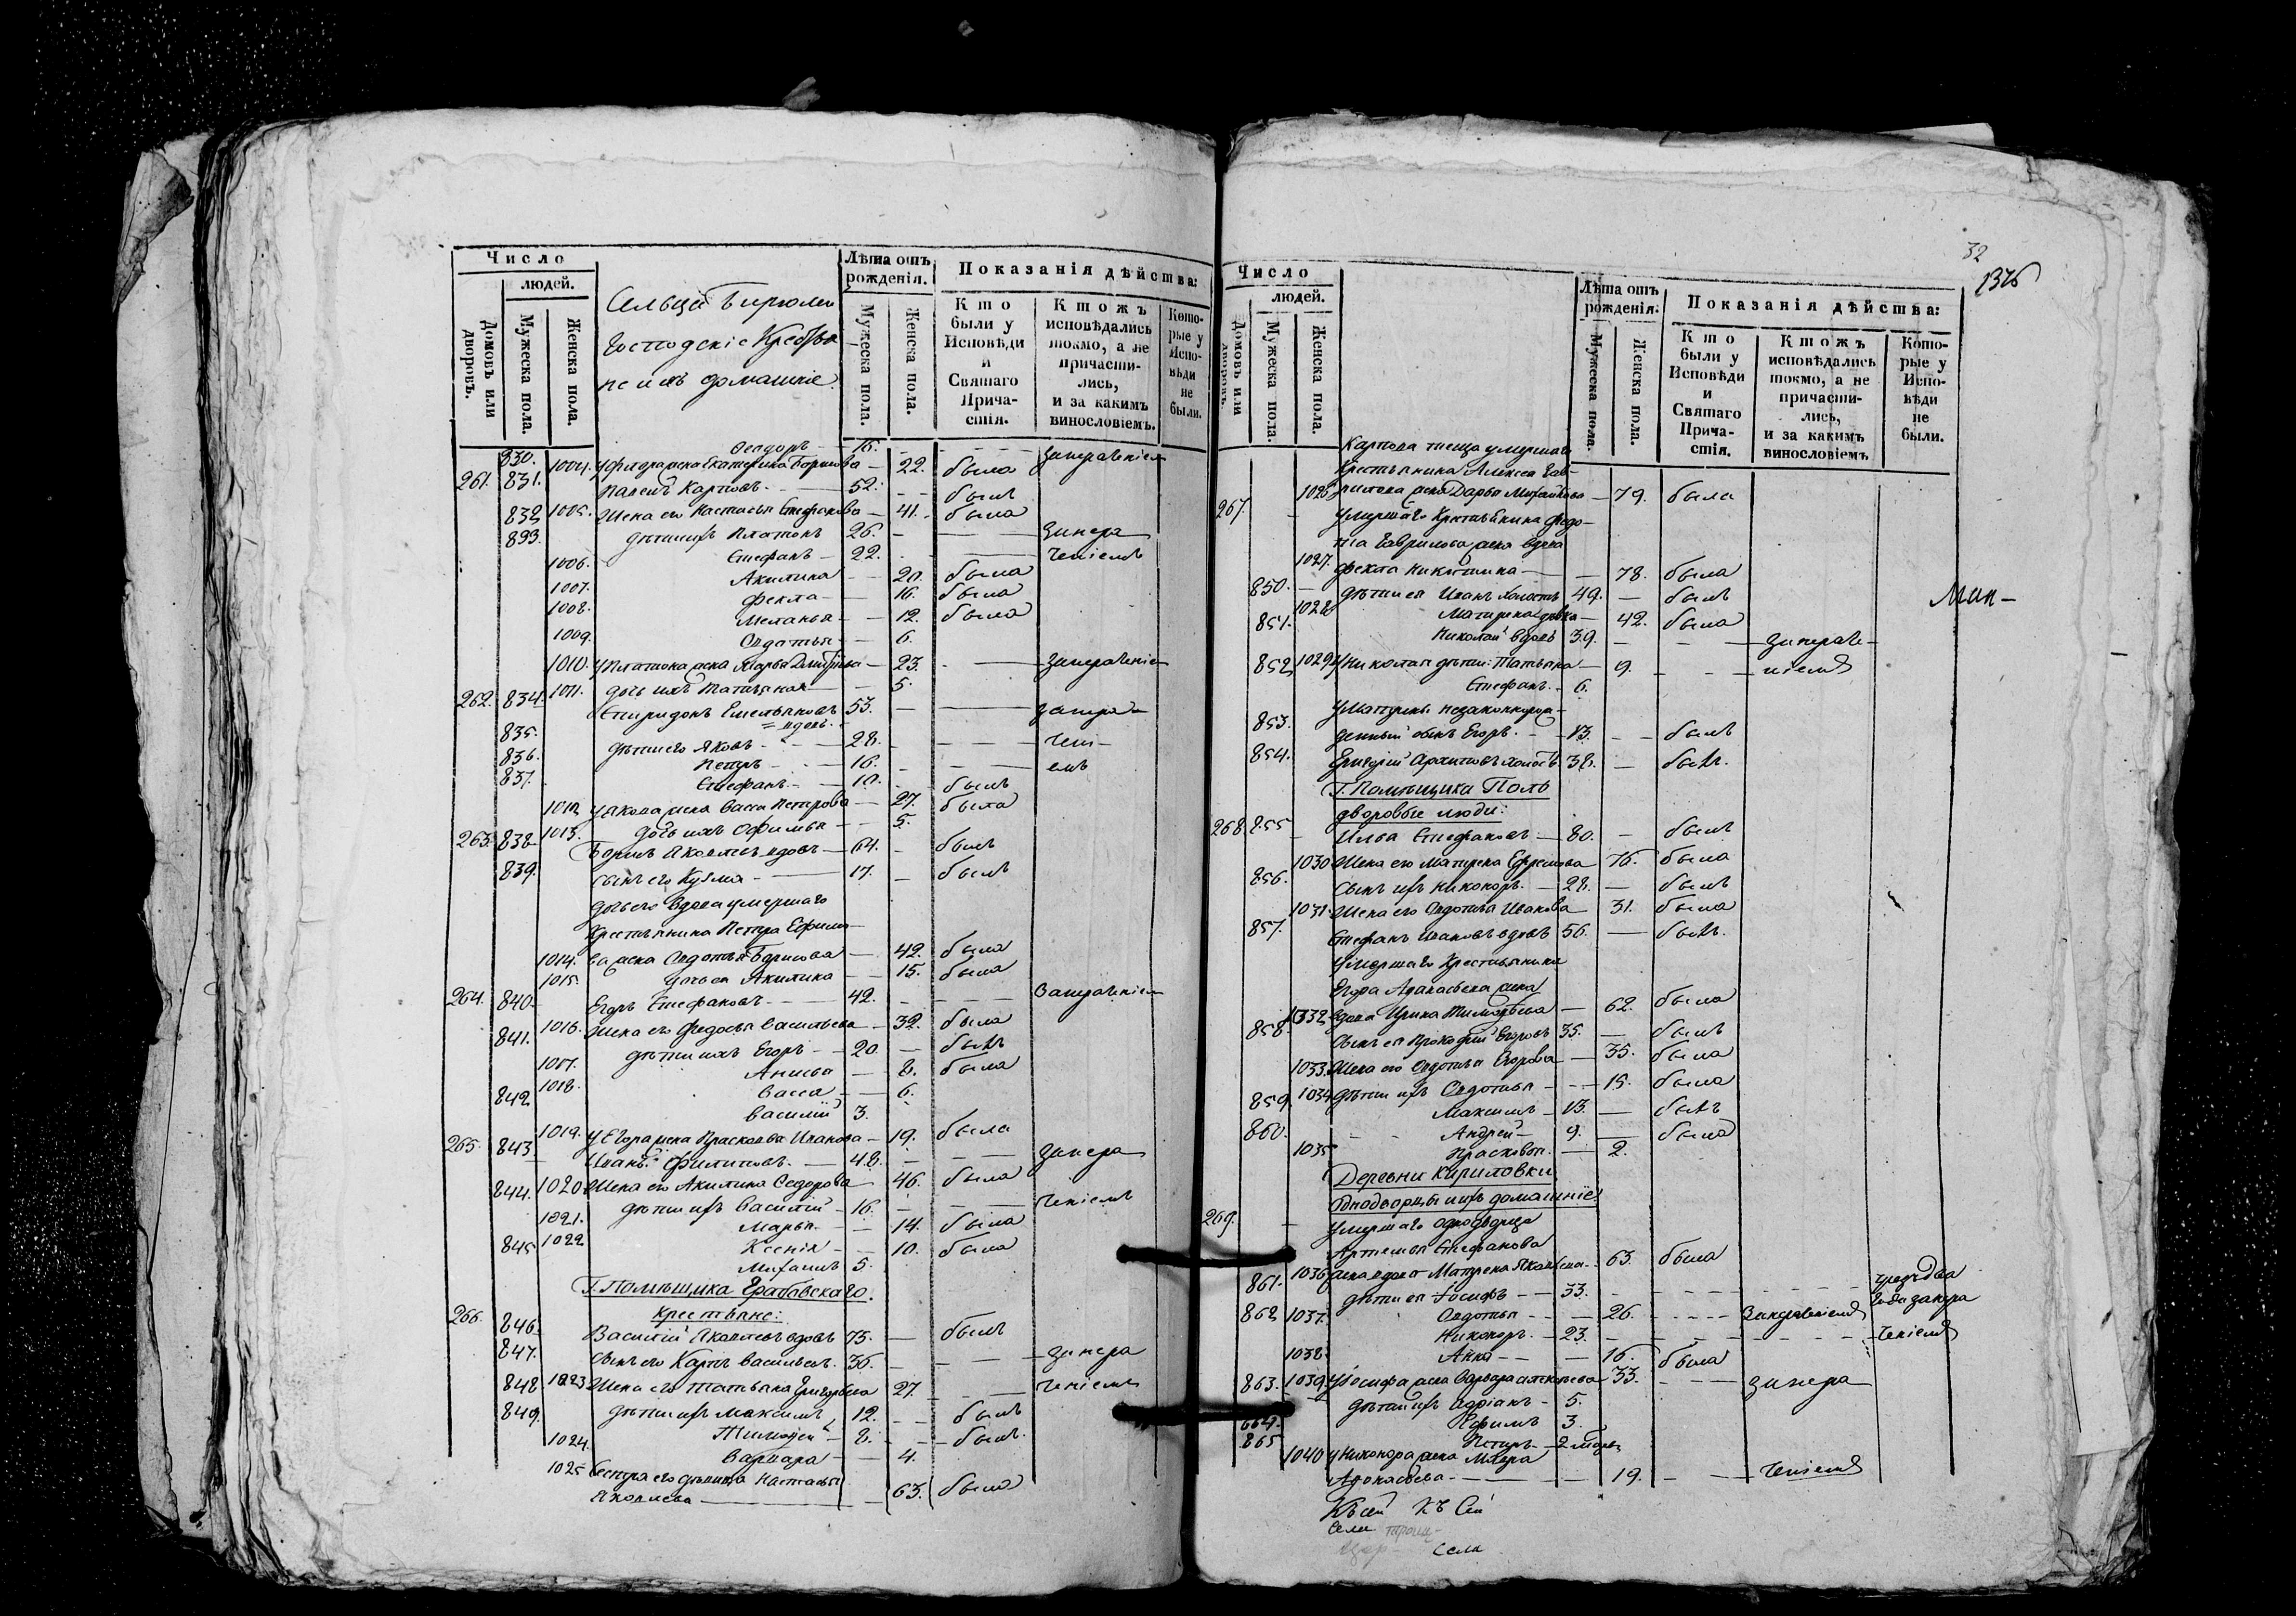 Число
людей.
Домовъ или дворовъ.
Мужеска пола.
Женска пола.
Сельца Бирюлеи
Господскіе Крестья
не и ихъ домашніе.
Лѣта отъ рожденія.
Мужеска пола.
Женска пола.
Показанія дѣйства:
Кто были у Исповѣди и Святаго Причастія.
Ктожъ исповѣдались токмо, а не причастились, и за какимъ винословіемъ.
Которые у Исповѣди не были.
830. Ѳеодоръ — 16. — запраченіем
1004. у Ѳеодора жена Екатерина Борисова — 22. была
261. 831. Павелъ Карповъ — 52. былъ
1005. Жена его Настасья Стефанова — 41. была
832 дѣти ихъ Платонъ 26. — занера
833. Стефанъ — 22. — ченіемъ
1006. Акилина — 20. была
1007. Фекла — 16. была
1008. Меланья — 12. была
1009. Овдотья — 6.
1010. у Платона жена Марѳа — 23. — запраченіе
1011. дочь ихъ Татьяна — 5.
262. 834. Спиридонъ Емельяновъ 53. — занера
= вдовъ.
835. дѣти его Яковъ — 28. — чені
836. Петръ — 16. — емъ
837. Стефанъ — 10. былъ
1012 у Якова жена Васса Петрова — 27. была
1013. дочь ихъ Офимья — 5.
263. 838 Борисъ Яковлевъ вдовъ — 64. — былъ
839. сынъ его Кузма — 17. — былъ
дочь его вдова умершаго
крестьянина Петра Ефимо
1014. ва жена Овдотья Борисова — 42. была
1015. дочь ея Акилина — 15. была
264. 840. Егоръ Стефановъ — 42. — Запраченіем
1016. Жена его Федосья Васильева — 39. была
841. дѣти ихъ Егоръ — 20. — былъ
1017. Анисья — 8. была
1018. Васса — 6.
842 Василій 3.
1019. у Егора жена Прасковья Иванова — 19. была
265. 843. Иванъ Филиповъ — 48. — занера
1020. Жена его Акилина Седорова 46. была
844. дѣти ихъ Василій — 16. — ченіемъ
1021. Марья — 14. была
1022 Ксенія — 10. была
845 Михаилъ 5.
Г. Помѣщика Грабовскаго.
крестьяне:
266. 846. Василій Яковлевъ вдовъ 75. — былъ
847. сынъ его Карпъ Васильевъ. 36. — занера
1023 Жена его Татьяна Григорьева 27. — ченіемъ
848 дѣти ихъ Максимъ 12. — былъ
849. Тимоѳей — 8. — былъ.
1024. Варвара — 4.
1025 Сестра его дѣвица Настасья
Яковлева — 63. была
32
1376
Число
людей.
Домовъ или дворовъ.
Мужеска пола.
Женска пола.
Лѣта отъ рожденія.
Мужеска пола.
Женска пола.
Показанія дѣйства:
Кто были у Исповѣди и Святаго Причастія.
Ктожъ исповѣдались токмо, а не причастились, и за какимъ винословіемъ
Которые у Исповѣди не были.
Карпова теща умершаго
крестьянина Алексея Гав-
1026 рилова жена Дарья Михайлова — 79. была
267. умершаго Крестьянина Федо-
та Гаврилова жена вдова
1027. Фекла Никитина — 78. была
850. дѣти ея Иванъ холостъ 49. — былъ
1028 Матрена дѣвка — 42. была
851. Николай вдовъ 39. — запраче-
1029 у Николая дѣти: Татьяна — 9. — ніемъ
852 Стефанъ — 6.
у Матрены незаконнорож-
853. денный сынъ Егоръ — 13. — былъ
854. Григорій Архиповъ холостъ 38. — былъ.
Г. Помѣщика Поль
дворовые люди:
268 855 Илья Стефановъ — 80. — былъ
1030 Жена его Матрена Ефремова 76. была
856. Сынъ ихъ Никоноръ — 28. — былъ
1031. Жена его Овдотья Иванова 31. была
857. Стефанъ Ивановъ вдовъ 56. — былъ.
умершаго Крестьянина
Егора Аѳанасьева жена
1032 вдова Ирина Тимоѳеева — 62. была
858. Сынъ ея Прокофій Егоровъ 35. — былъ
1033. Жена его Овдотья Егорова — 35. была
1034 дѣти ихъ Овдотья — 15. была
859. Максимъ — 13. — былъ
860. Андрей — 9. — была
1035 Прасковья — 2.
Деревни Кириловки
Однодворцы и ихъ домашніе:
269. умершаго однодворца
Артемья Стефанова
1036 жена вдова Матрена Яковлева — 63. была
861. дѣти ея Іосифъ — 33. —
1037. Овдотья — 26. — Запраченіемъ
862 Никоноръ — 23. — ченіемъ
1038. Анна — 16. была
1039. у Іосифа жена Варвара 33. — занера
863. дѣти ихъ Адріанъ — 5.
864. Ефимъ 3.
865 Петръ — 2
1040 у Никонора жена
Аѳонасьева — 19. — ченіемъ
Мин —
Къ сей Къ Сей
Села
Села